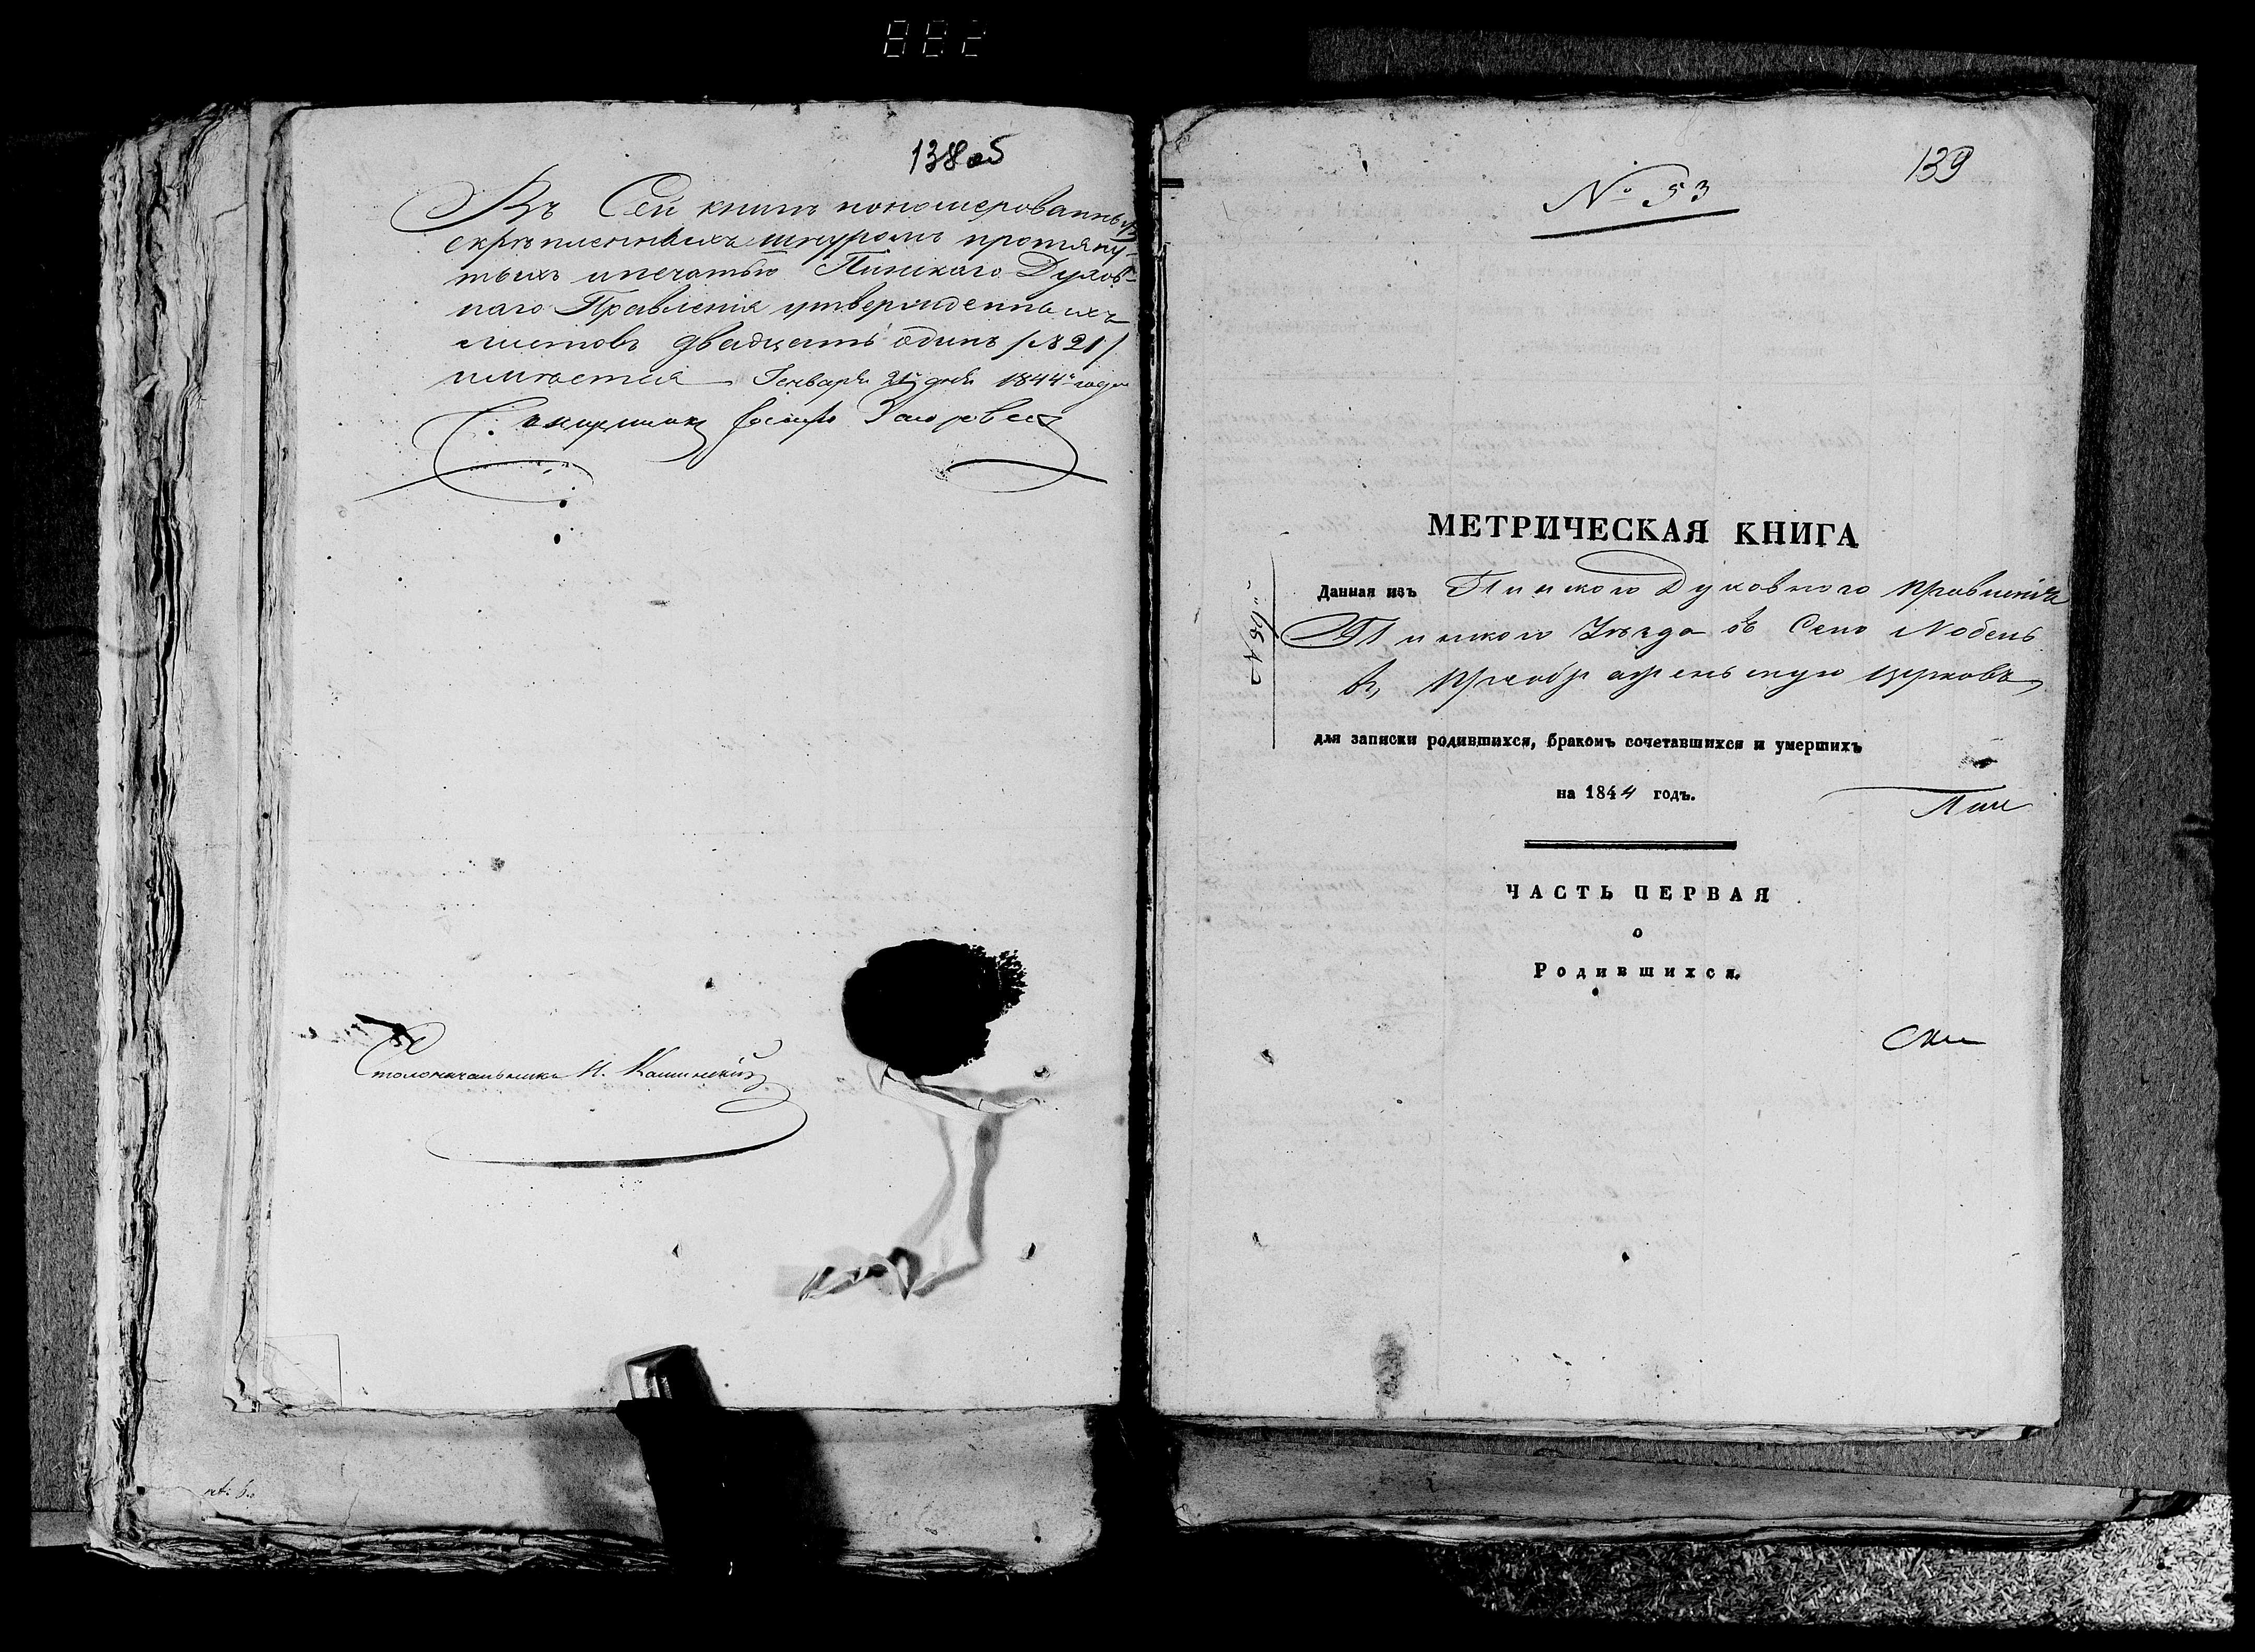 882
138 об
Въ Сей книгѣ пономерованныхъ
скрѣпленныхъ шнуромъ протяну-
тыхъ и печатью Пинскаго Духов-
наго Правленія утвержденныхъ
листовъ двадцать одинъ /№ 21/
имѣется Генваря 21 дня 1844 года
Столоначальникъ И. Калинскій
139
№ 53
МЕТРИЧЕСКАЯ КНИГА
Данная изъ Пинского Духовного Правленія
Пинского Уѣзда въ Село Нобель
въ Преображенскую церковь
№ 59
для записки родившихся, бракомъ сочетавшихся и умершихъ
на 1844 годъ.
ЧАСТЬ ПЕРВАЯ
о
Родившихся.